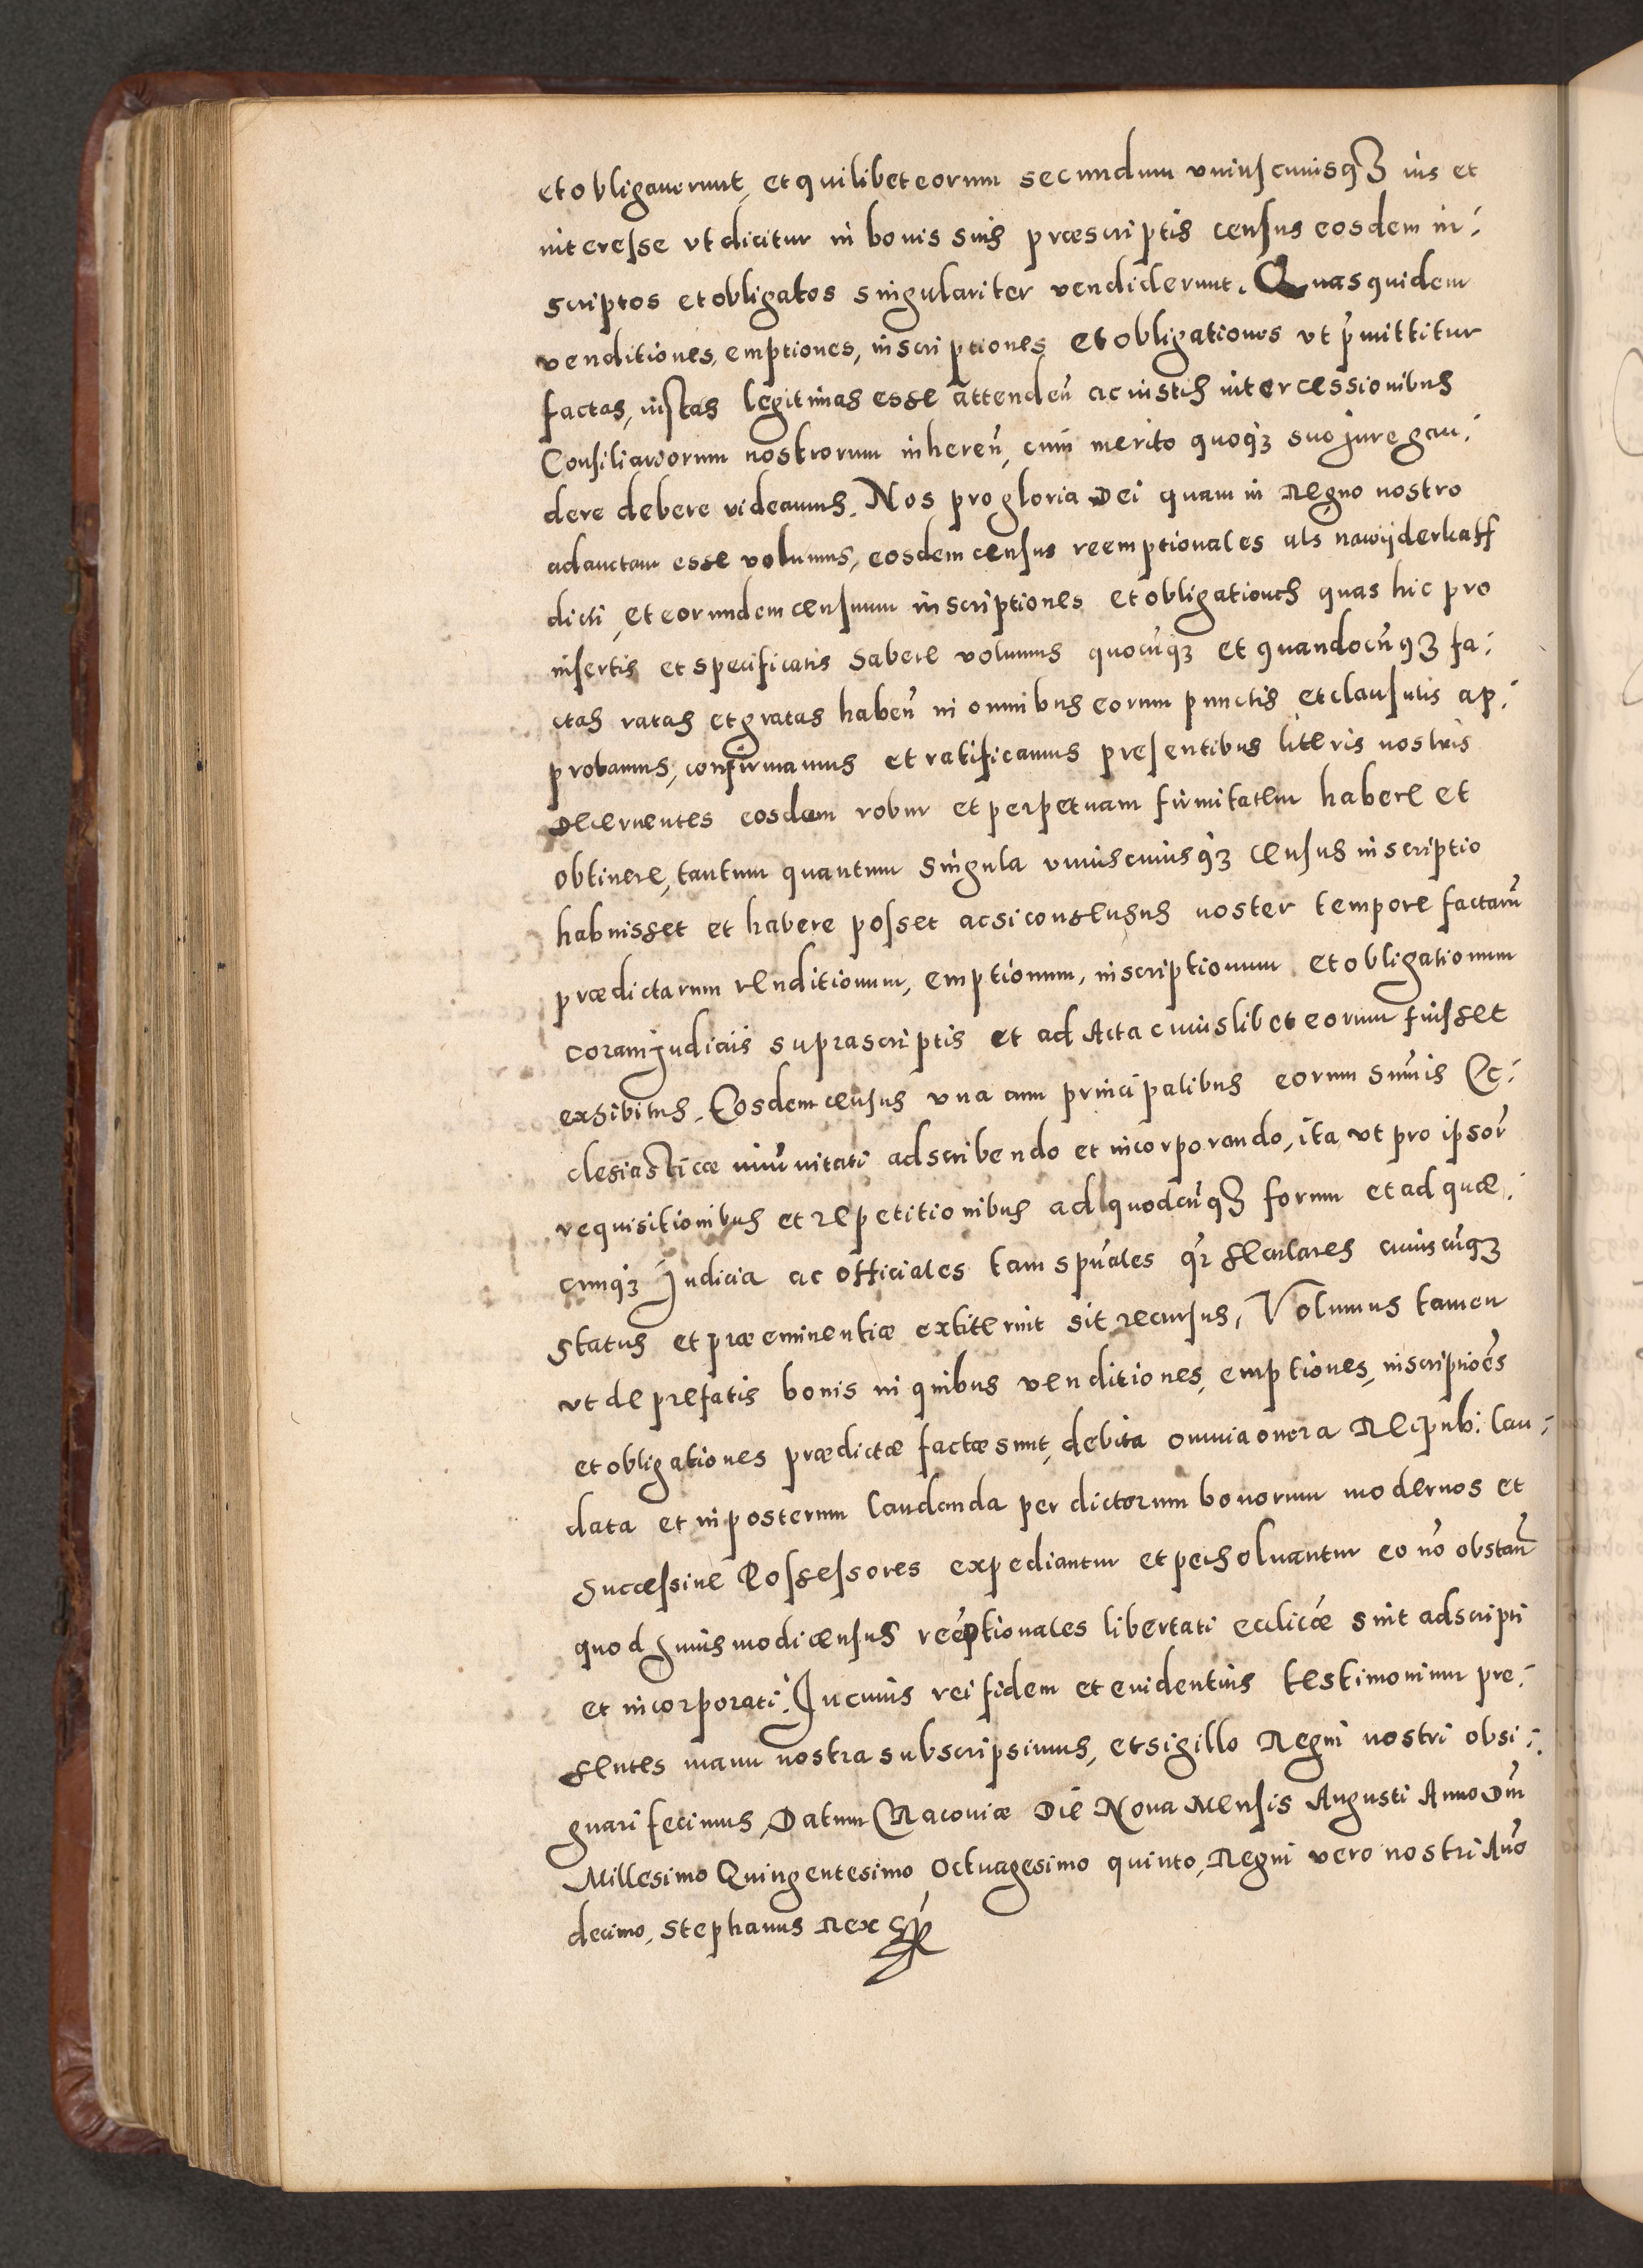 et obligaverunt, et quilibet eorum secundum vniuscuiusq3 ius et
interesse vt dicitur in bonis suis præscriptis census eosdem in⸗
scriptos et obligatos singulariter vendiderunt. Quasquidem
venditiones, emptiones, inscriptiones et obligationes vt p̃mittitur
factas, iustas legitimas esse attendeñ ac iustis intercessionibus
Consiliariorum nostrorum inhereñ, cum merito quoq3 suo jure gau⸗
dere debere videamus. Nos pro gloria Dei quam in Regno nostro
adauctam esse volumus, eosdem census reemptionales als nawyderkaff
dicti, et eorundem censuum inscriptiones et obligationes quas hic pro
insertis et specificatis habere volumus quocũq3 et quandocũq3 fa⸗
ctas ratas et gratas habeñ in omnibus eorum punctis et clausulis ap⸗
probamus, confirmamus et ratificamus presentibus literis nostris
Decernentes eosdem robur et perpetuam firmitatem habere et
obtinere, tantum quantum singula vniuscuiusq3 census inscriptio
habuisset et habere posset acsi consensus noster tempore factarũ
prædictarum venditionum, emptionum, inscriptionum et obligationum
coram judiciis suprascriptis et ad Acta cuiuslibet eorum fuisset
exhibitus. Eosdem census vna cum principalibus eorum sum̃is Ec⸗
clesiasticæ im̃unitati adscribendo et incorporando, ita vt pro ipsor̃
requisitionibus et repetitionibus ad quodcũq3 forum et ad quæ⸗
cunq3 Judicia ac officiales tam spũales q̃ seculares cuiuscũq3
status et præeminentiæ extiterint sit recursus, Volumus tamen
vt de prefatis bonis in quibus venditiones, emptiones, inscriptiões
et obligationes prædictæ factæ sunt, debita omnia onera Reipub: lau⸗
data et in posterum laudanda per dictorum bonorum modernos et
successiue Possessores expediantur et persoluantur eo nõ obstañ
quod huiusmodi census reẽptionales libertati ecclicæ sint adscripti
et incorporati. In cuius rei fidem et euidentius testimonium pre⸗
sentes manu nostra subscripsimus, et sigillo Regni nostri obsi⸗
gnari fecimus, Datum Cracouiæ Die Nona Mensis Augusti Anno Dñi
Millesimo Quingentesimo Octuagesimo quinto, Regni vero nostri Año
decimo, Stephanus Rex